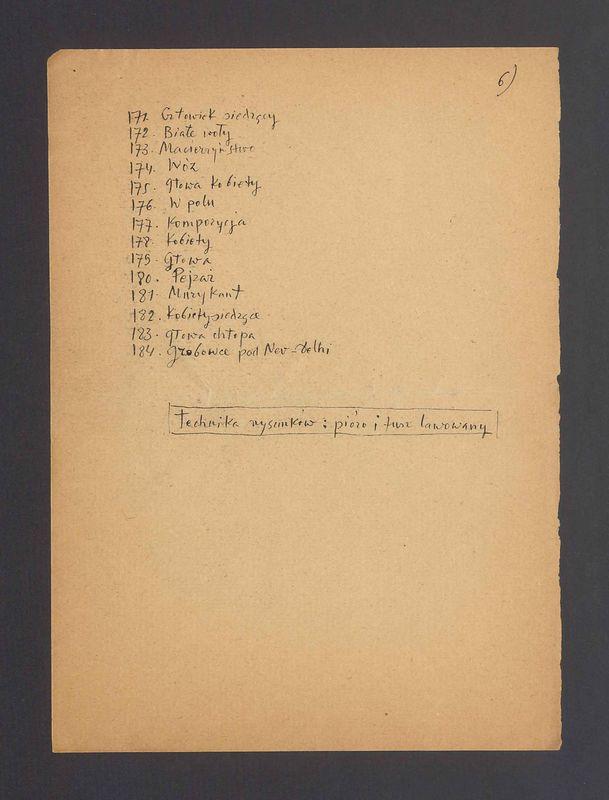 6)
171. Człowiek siedzący
172. Białe woły
173. Macierzyństwo
174. Wóz
175. Głowa kobiety
176. W polu
177. Kompozycja
178. Kobiety
179. Głowa
180. Pejzaż
181. Muzykant
182. Kobiety siedzące
183. Głowa chłopa
184. Grobowce pod New-Delhi
Technika rysunków: pióro i tusz lawowany